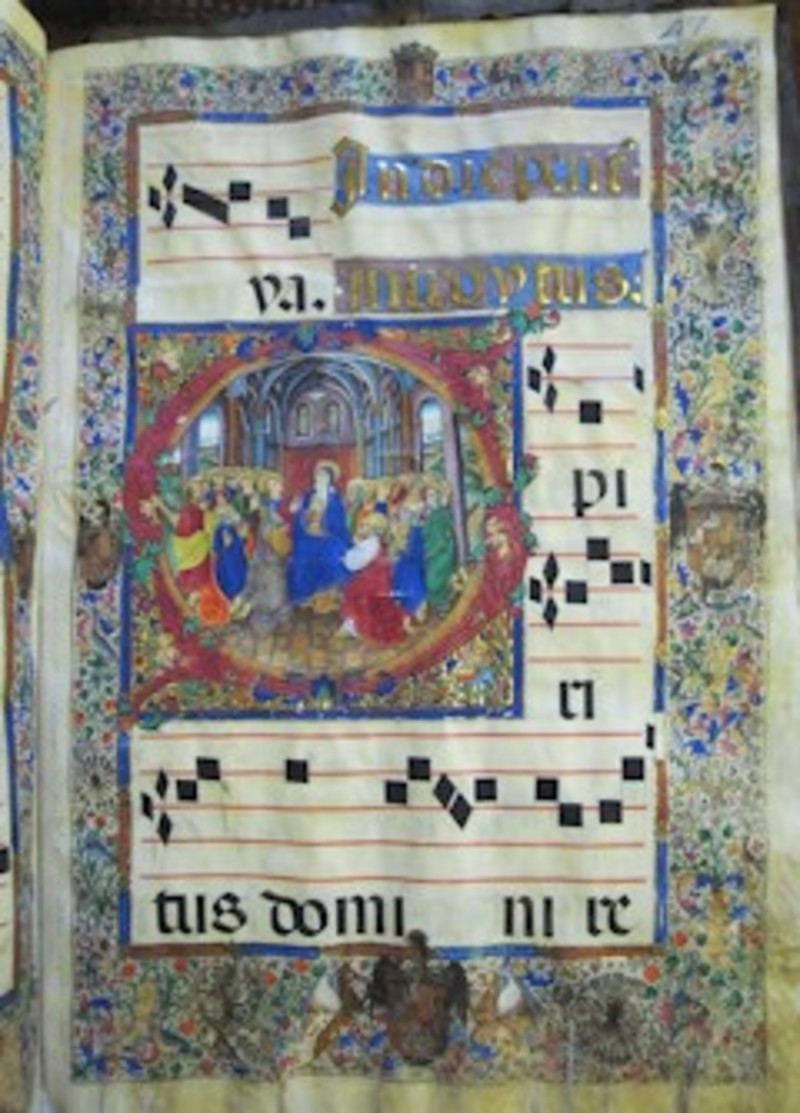 In die pent
va. introytus:
pi
ri
tus domi ni re